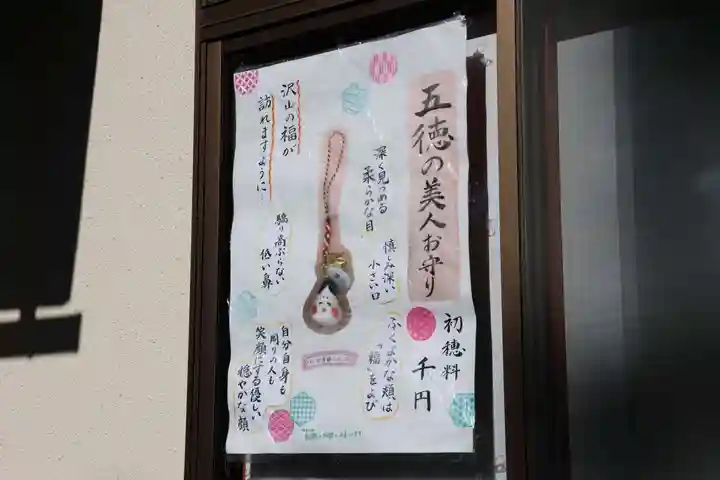 五徳の美人お守り
初穂料
千円
深く見つめる
柔らかな目
慎しみ深い
小さい口
ふくよかな頬は
"福"をよび
沢山の福が
訪れますように…
驕り高ぶらない
低い鼻
自分自身も
周りの人も
笑顔にする優しい
穏やかな顔